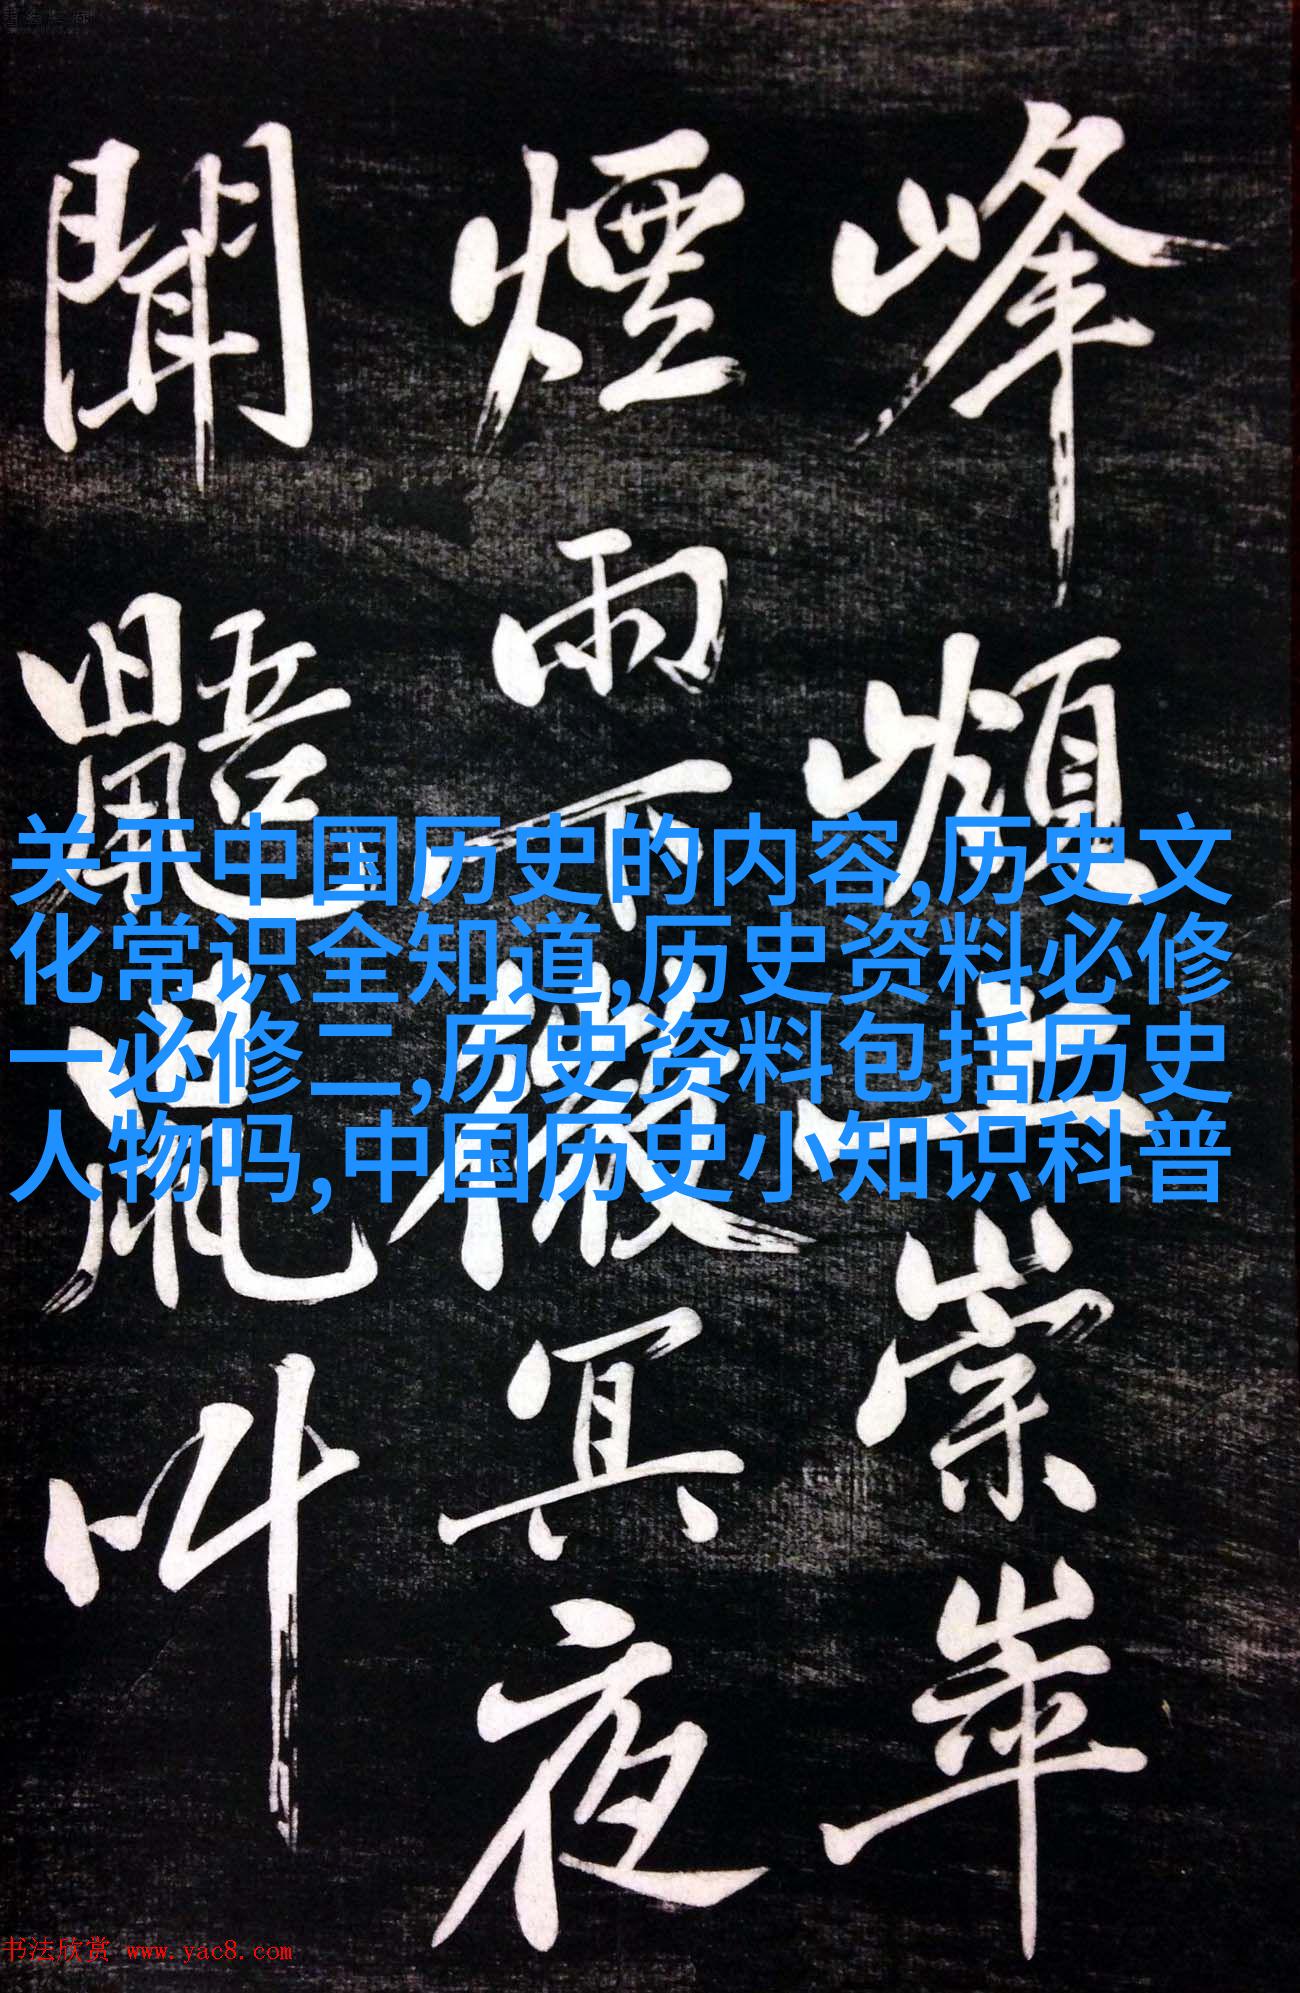 峰頔上崇崒
煙雨下微冥夜
聞鼯鼠叫
关于中国历史的内容,历史文
化常识全知道,历史资料必修
一必修二,历史资料包括历史
人物吗,中国历史小知识科普
书法欣赏 www.yac8.com